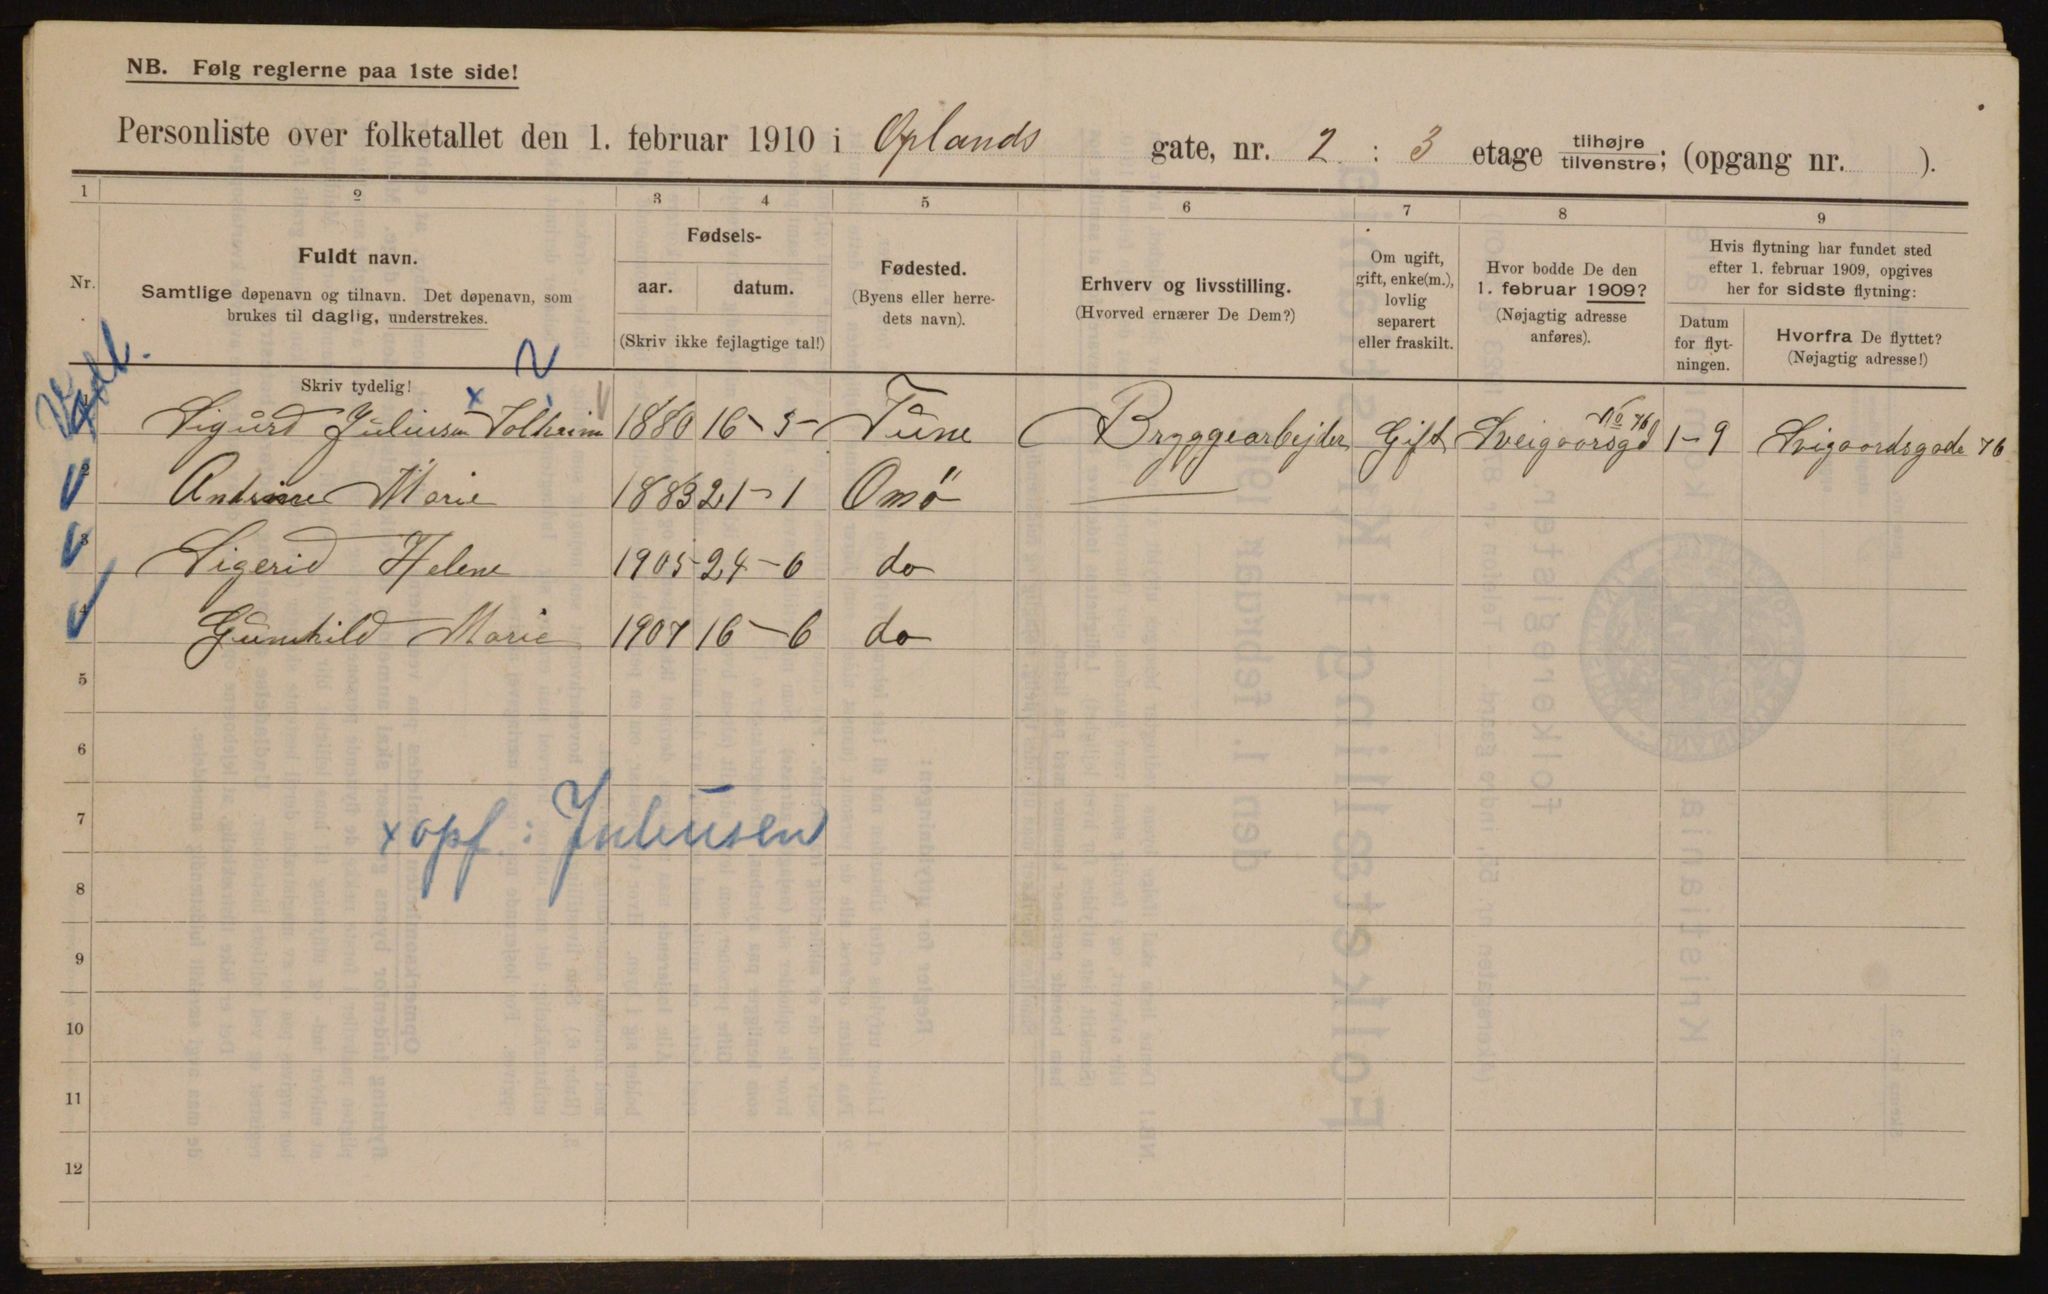 NB. Følg reglerne paa 1ste side!
Personliste over folketallet den 1. februar 1910 i Oplands gate, nr. 2 : 3 etage tilhøjre tilvenstre; (opgang nr. ).
1 2 3 4 5 6 7 8 9
Nr.
Fuldt navn.
Samtlige døpenavn og tilnavn. Det døpenavn, som
brukes til daglig, understrekes.
Skriv tydelig!
Fødsels-
aar. datum.
(Skriv ikke fejlagtige tal!)
Fødested.
(Byens eller herre-
dets navn).
Erhverv og livsstilling.
(Hvorved ernærer De Dem?)
Om ugift,
gift, enke(m.),
lovlig
separert
eller fraskilt.
Hvor bodde De den
1. februar 1909?
(Nøjagtig adresse
anføres).
Hvis flytning har fundet sted
efter 1. februar 1909, opgives
her for sidste flytning:
Datum
for flyt-
ningen.
Hvorfra De flyttet?
(Nøjagtig adresse!)
x 2
Sigurd Juliusen Solheim 1880 16-5- Tune Bryggearbejder Gift Sveigaarsgd No 76 1-9 Svigaardsgade 76
2 Andrine Marie 1883 21-1 Onsö
3 Sigerid Helene 1905 24-6 do
4 Gunhild Marie 1907 16-6 do
5
6
7 x opf: Juliusen
8
9
10
11
12